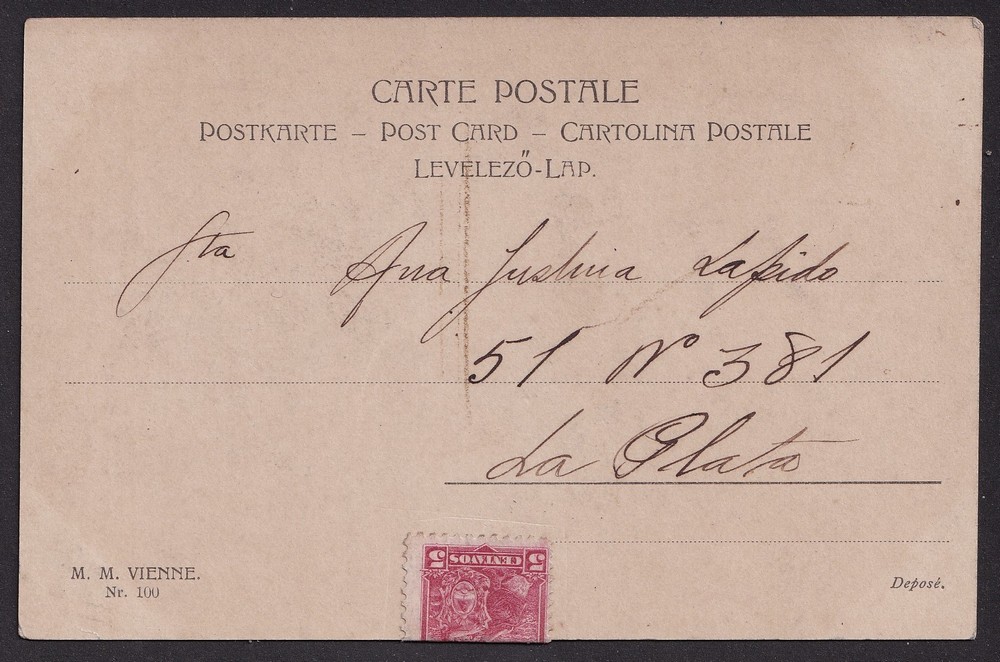 CARTE POSTALE
POSTKARTE – POST CARD – CARTOLINA POSTALE
LEVELEZŐ-LAP.
Sta Ana Justina Lapido
51 Nº 381
La Plata
5 CENTAVOS 5
M. M. VIENNE.
Nr. 100
Deposé.